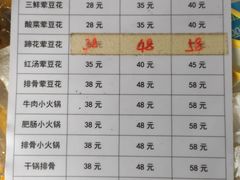 三鲜荤豆花 28 元 35 元 40 元
酸菜荤豆花 28 元 35 元 40 元
蹄花荤豆花 38 48 58
红汤荤豆花 35 元 40 元 45 元
排骨荤豆花 38 元 48 元 58 元
牛肉小火锅 38 元 48 元 58 元
肥肠小火锅 38 元 48 元 58 元
排骨小火锅 38 元 48 元 58 元
干锅排骨 38 元 48 元 58 元